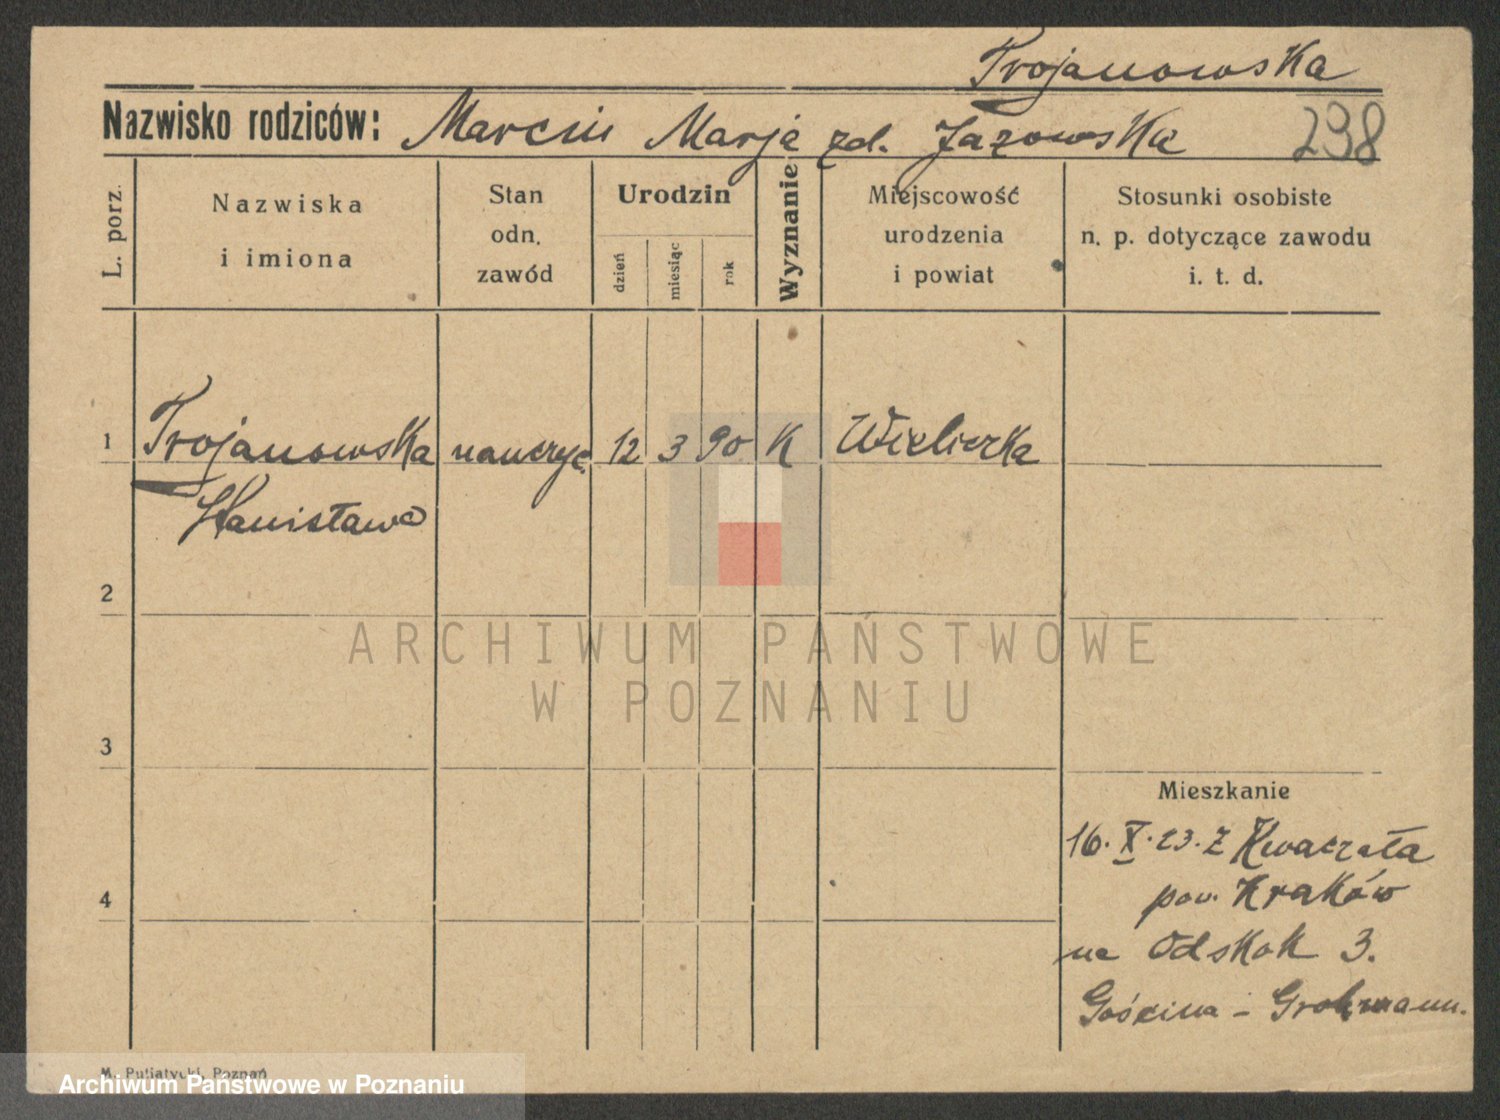 Trojanowska
Nazwisko rodziców: Marcin Marja zd. Jazowska 298
L. porz.
Nazwiska
i imiona
Stan
odn.
zawód
Urodzin
dzień
miesiąc
rok
Wyznanie
Miejscowość
urodzenia
i powiat
Stosunki osobiste
n. p. dotyczące zawodu
i. t. d.
1 Trojanowska nauczyc. 12 3 90 K Wieliczka
Stanisława
2
ARCHIWUM PAŃSTWOWE
W POZNANIU
3
Mieszkanie
16. X. 23. z Kwaczała
pow. Kraków
4
na Odskok 3.
Gościna - Grohmann.
M. Putiatycki, Poznań
Archiwum Państwowe w Poznaniu